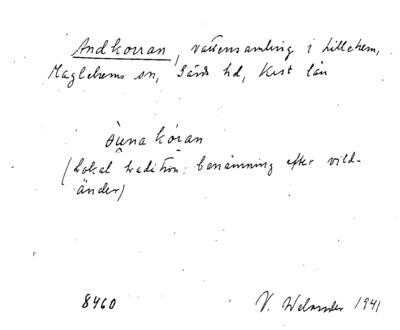 Andkorran, vattensamling i Lillehem,
Maglehems sn, Gärds hd, Krist län
åuna kóran
(Lokal tradition: benämning efter vild-
änder)
8460 V. Welander 1941